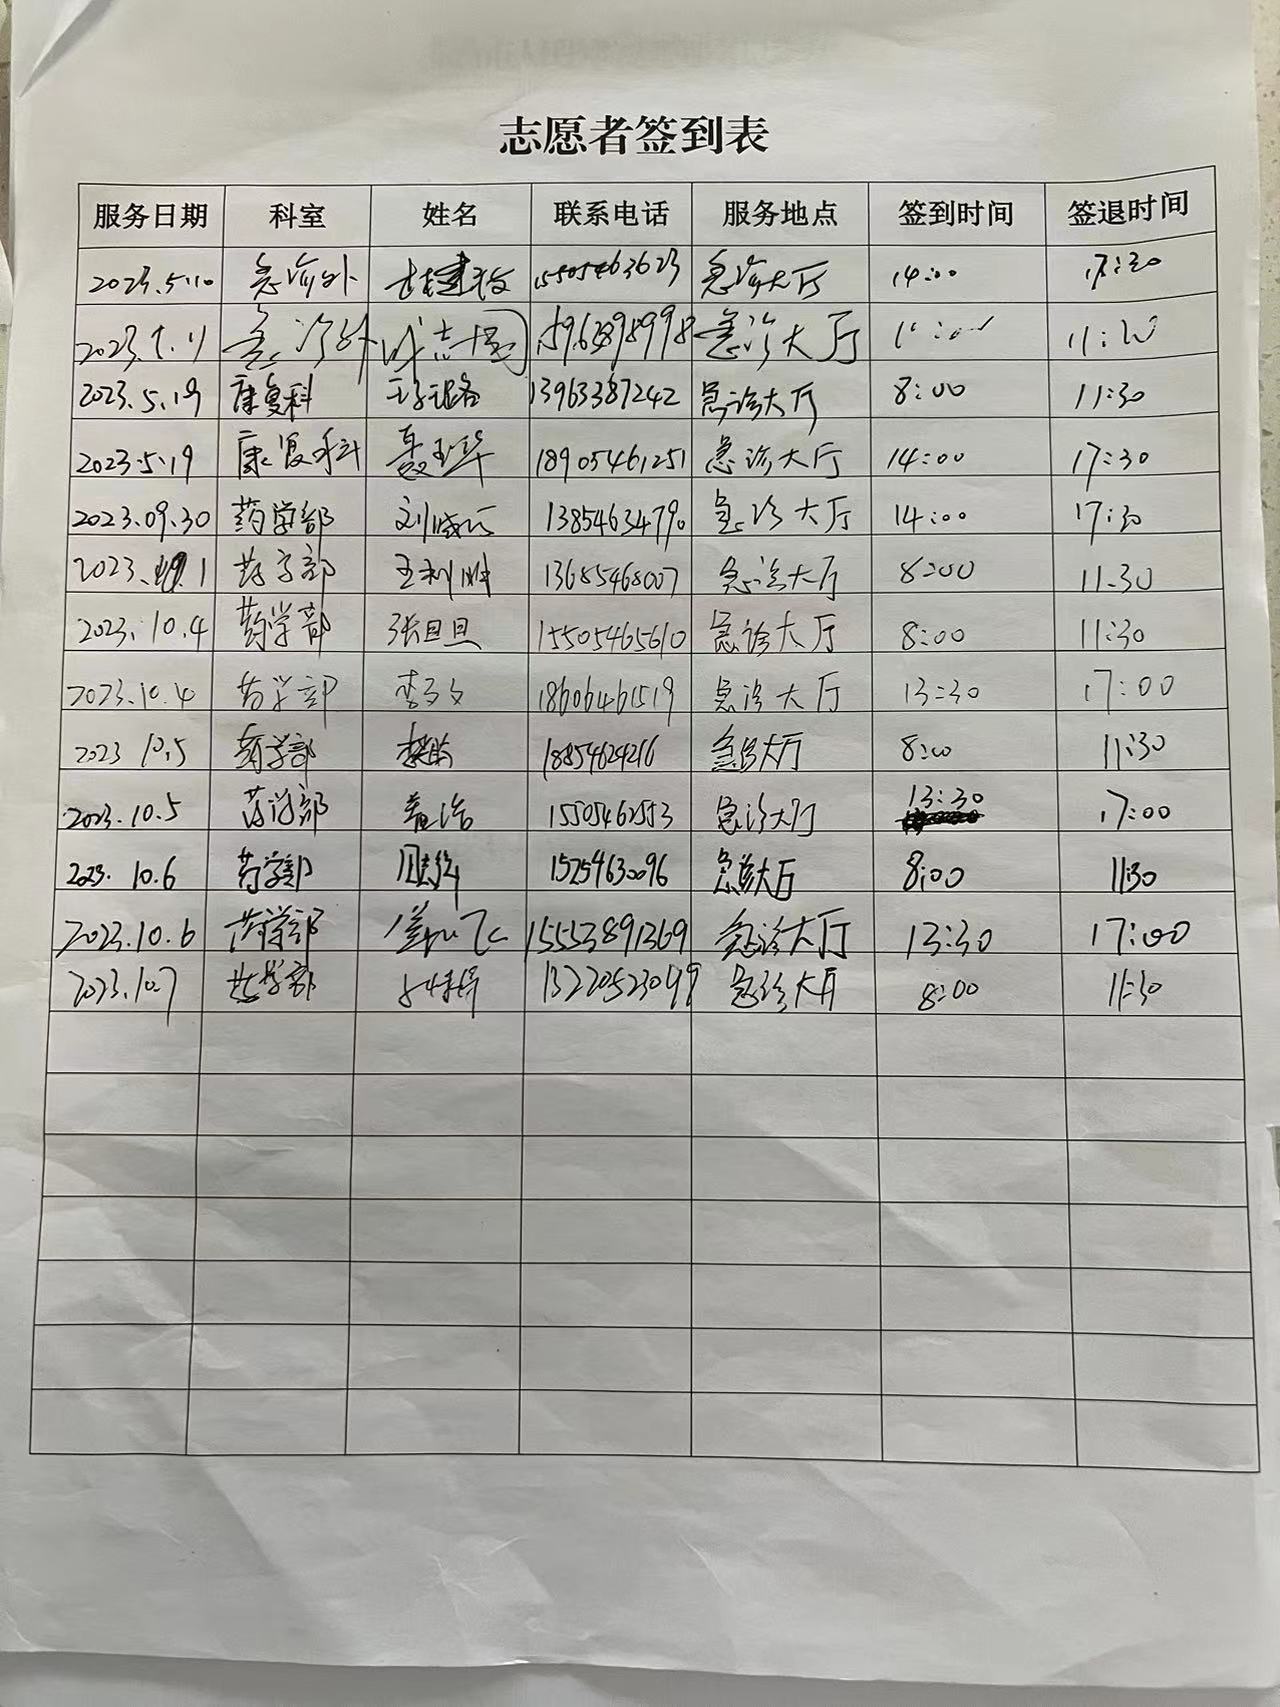 志愿者签到表
服务日期 科室 姓名 联系电话 服务地点 签到时间 签退时间
2023.5.10 急诊外 15505463623 急诊大厅 14:00 17:30
2023.5.11 急诊外 急诊大厅
2023.5.19 康复科 13963387242 急诊大厅 8:00 11:30
2023.5.19 康复科 聂玉华 18905461251 急诊大厅 14:00 17:30
2023.09.30 药学部 13854634790 急诊大厅 14:00 17:30
药学部 王利胜 13685468007 急诊大厅 8:00 11.30
2023.10.4 药学部 张旦旦 15505465610 急诊大厅 8:00 11:30
2023.10.4 药学部 李文文 18606461519 急诊大厅 13:30 17:00
2023 10.5 药学部 18854624216 急诊大厅 8:00 11:30
2023.10.5 药学部 15505462553 急诊大厅 13:30 17:00
2023. 10.6 药学部 15254630096 急诊大厅 8:00 11:30
2023.10.6 药学部 15553891369 急诊大厅 13:30 17:00
2023.10.7 药学部 急诊大厅 8:00 11:30